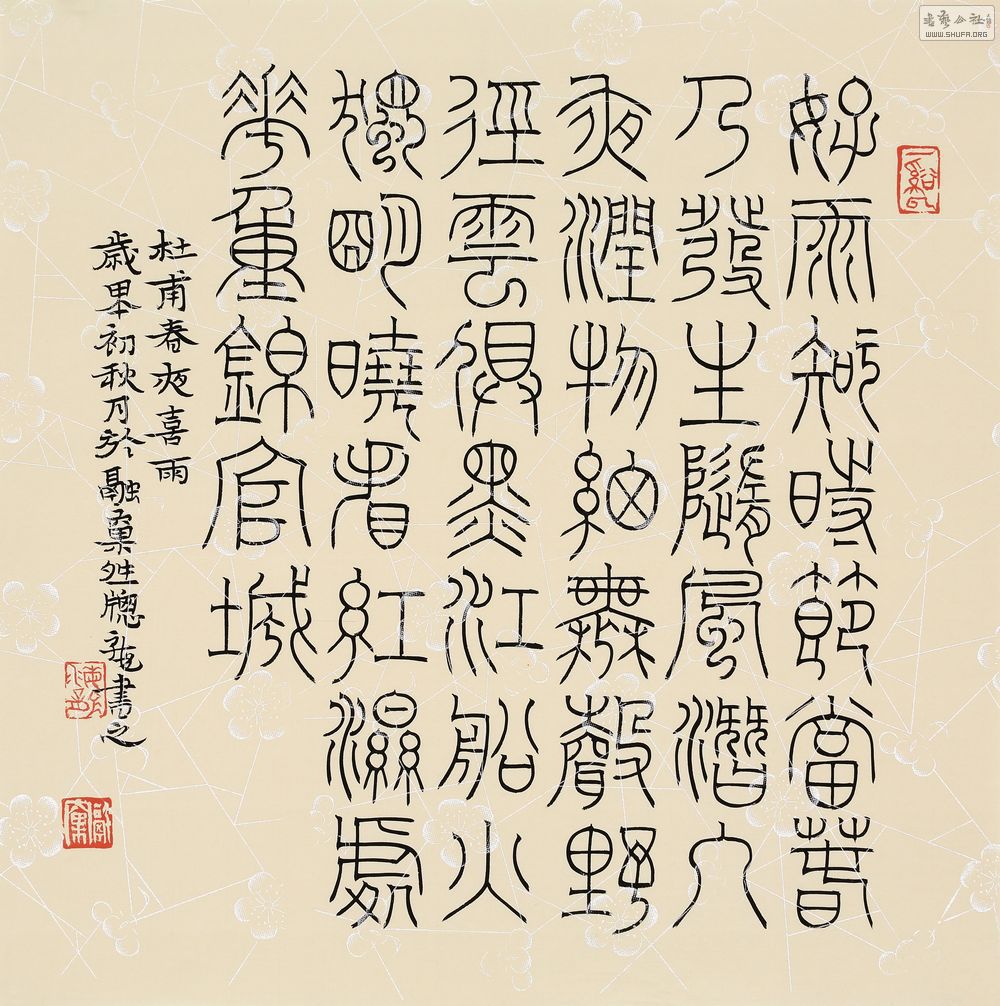 好雨知時節當春
乃發生隨風潛入
夜潤物細無聲野
徑雲俱黑江船火
獨明曉看紅濕處
華重錦官城
杜甫春夜喜雨
歲初秋月於融巢書之
書藝公社
WWW.SHUFA.ORG